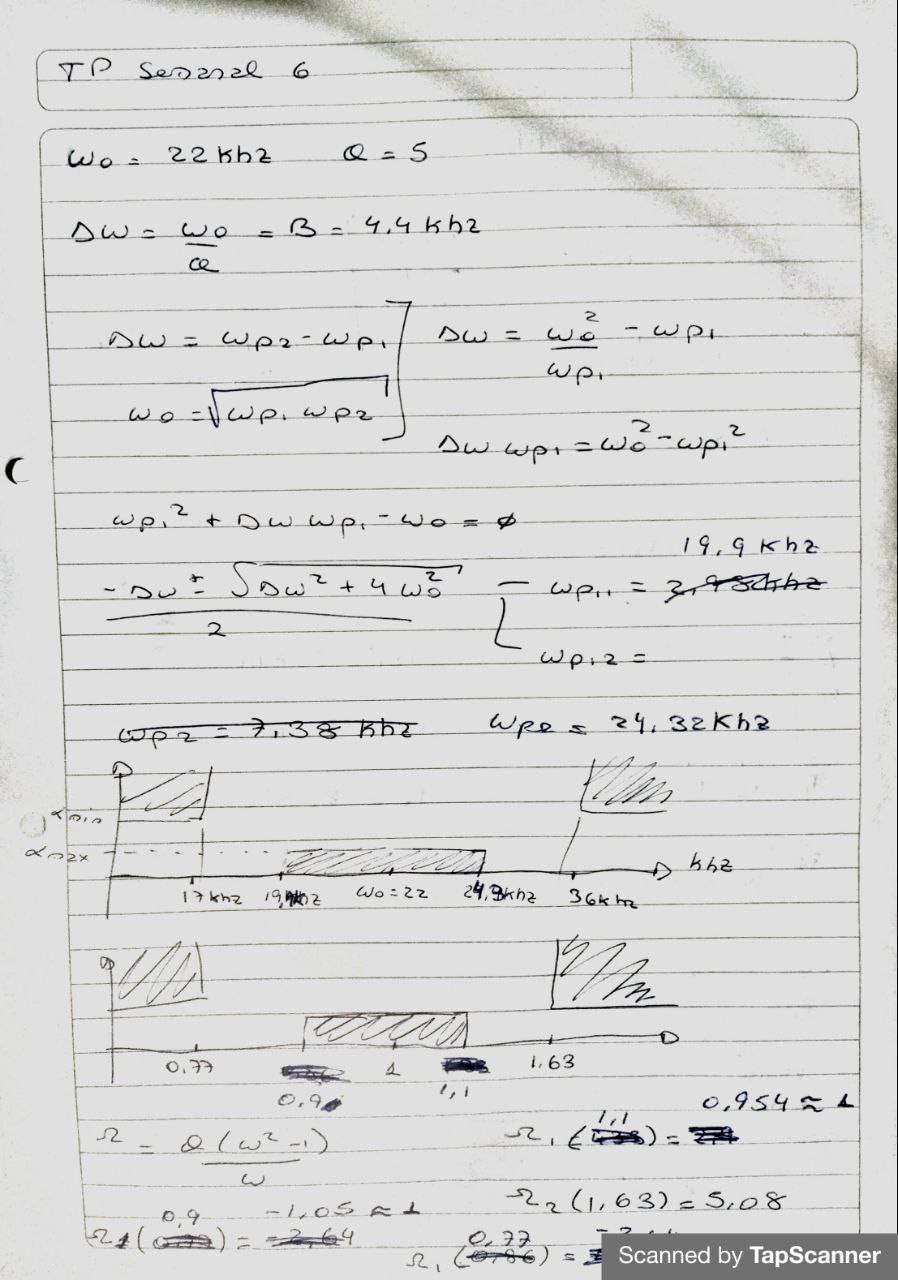 TP Semanal 6
ω0 = 22 Khz Q = 5
Δω = ω0/Q = B = 4,4 Khz
Δω = ωp2 - ωp1
ω0 = √(ωp1 ωp2)
Δω = ω0²/ωp1 - ωp1
Δω ωp1 = ω0² - ωp1²
ωp1² + Δω ωp1 - ω0 = ϕ
19,9 Khz
(-Δω ± √(Δω² + 4ω0²))/2 ωp11 =
ωp12 =
ωp2 = 7,38 Khz ωp2 = 24,32 Khz
αmin
αmax
Khz
17 Khz ω0=22 36 Khz
0,77 1 1,63
0,9 1,1
0,954 ≈ 1
Ω = Q(ω²-1)/ω Ω1(1,1) =
Ω2(1,63) = 5,08
Ω1(0,9) = -1,05 ≈ 1
Ω1(0,77) =
Scanned by TapScanner